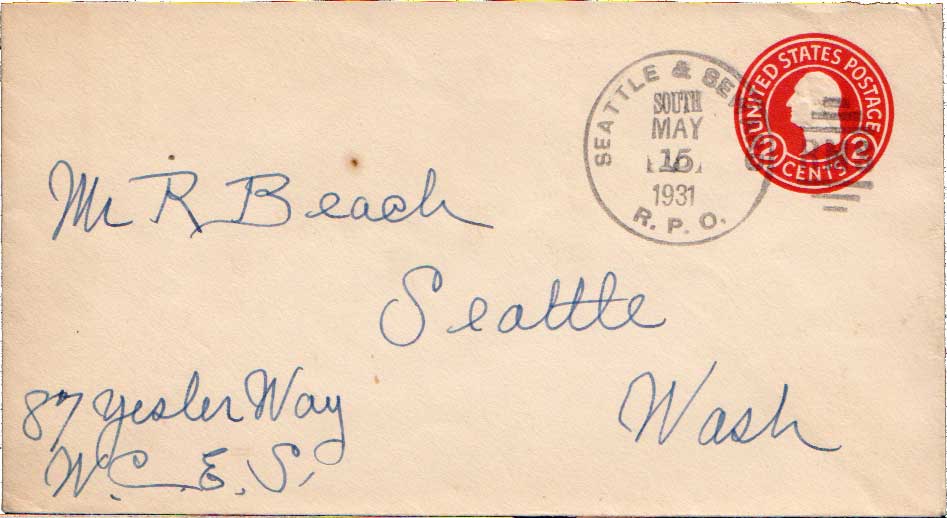 SEATTLE &
SOUTH
MAY
15
1931
R. P. O.
UNITED STATES POSTAGE
2 CENTS 2
Mr R Beach
Seattle
Wash
87 Yesler Way
W. C. E. S.